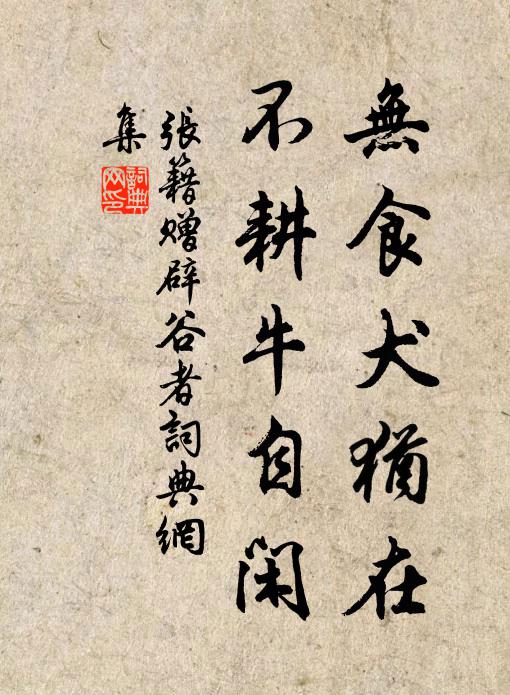 無食犬猶在
不耕牛自閑
張籍贈辟谷者詞典網
集
詞典
网印